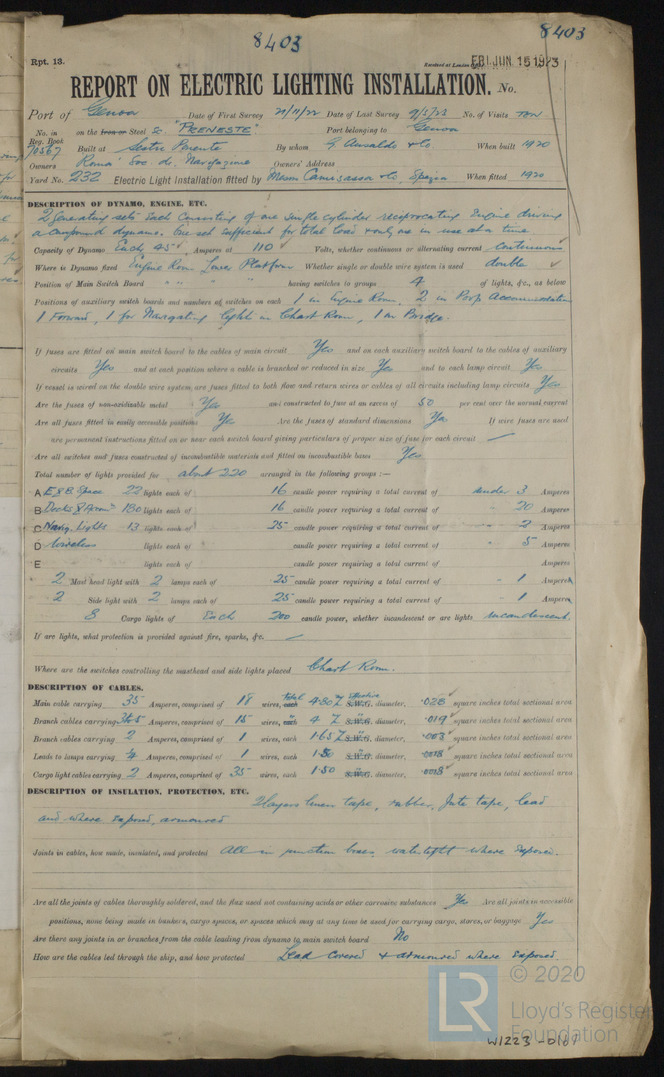 8403
8403
Rpt. 13.
Received at London Office FRI. JUN. 15 1923
REPORT ON ELECTRIC LIGHTING INSTALLATION. No.
Port of Genoa Date of First Survey 21/11/22 Date of Last Survey 9/5/23 No. of Visits Ten
No. in Reg. Book on the Iron or Steel "PRENESTE" Port belonging to Genoa
Built at Sestri Ponente By whom G Ansaldo & Co When built 1920
Owners Roma Soc. di Navigazione Owners' Address
Yard No. 232 Electric Light Installation fitted by Camizassa & Co, Spezia When fitted 1920
DESCRIPTION OF DYNAMO, ENGINE, ETC.
2 Generating sets each consisting of one single cylinder reciprocating Engine driving
a compound dynamo. One set sufficient for total load & only one in use at a time
Capacity of Dynamo Each 45 Amperes at 110 Volts, whether continuous or alternating current continuous
Where is Dynamo fixed Engine Room Lower Platform Whether single or double wire system is used double
Position of Main Switch Board " " " having switches to groups 4 of lights, &c., as below
Positions of auxiliary switch boards and numbers of switches on each 1 in Engine Room, 2 in Poop Accommodation
1 Forward, 1 for Navigating lights in Chart Room, 1 on Bridge.
If fuses are fitted on main switch board to the cables of main circuit Yes and on each auxiliary switch board to the cables of auxiliary
circuits Yes and at each position where a cable is branched or reduced in size Yes and to each lamp circuit Yes
If vessel is wired on the double wire system are fuses fitted to both flow and return wires or cables of all circuits including lamp circuits Yes
Are the fuses of non-oxidizable metal Yes and constructed to fuse at an excess of 50 per cent over the normal current
Are all fuses fitted in easily accessible positions Yes Are the fuses of standard dimensions Yes If wire fuses are used
are permanent instructions fitted on or near each switch board giving particulars of proper size of fuse for each circuit —
Are all switches and fuses constructed of incombustible materials and fitted on incombustible bases Yes
Total number of lights provided for about 220 arranged in the following groups :—
A E & B Space 22 lights each of 16 candle power requiring a total current of under 3 Amperes
B Decks & Accom 180 lights each of 16 candle power requiring a total current of " 20 Amperes
C Navig. Lights 13 lights each of 25 candle power requiring a total current of " 2 Amperes
D Wireless lights each of candle power requiring a total current of " 5 Amperes
E lights each of candle power requiring a total current of Amperes
2 Mast head light with 2 lamps each of 25 candle power requiring a total current of " 1 Amperes
2 Side light with 2 lamps each of 25 candle power requiring a total current of " 1 Amperes
8 Cargo lights of Each 200 candle power, whether incandescent or arc lights incandescent.
If arc lights, what protection is provided against fire, sparks, &c. —
Where are the switches controlling the masthead and side lights placed Chart Room.
DESCRIPTION OF CABLES.
Main cable carrying 35 Amperes, comprised of 18 wires, each total S.W.G. diameter, .028 square inches total sectional area
Branch cables carrying Amperes, comprised of 15 wires, each S.W.G. diameter, .019 square inches total sectional area
Branch cables carrying 2 Amperes, comprised of 1 wires, each S.W.G. diameter, .003 square inches total sectional area
Leads to lamps carrying Amperes, comprised of 1 wires, each 1.50 S.W.G. diameter, .0018 square inches total sectional area
Cargo light cables carrying 2 Amperes, comprised of 35 wires, each 1.50 S.W.G. diameter, .0018 square inches total sectional area
DESCRIPTION OF INSULATION, PROTECTION, ETC.
2 layers linen tape, rubber, Jute tape, lead
and where exposed, armoured
Joints in cables, how made, insulated, and protected All in junction boxes, watertight where exposed.
Are all the joints of cables thoroughly soldered, and the flux used not containing acids or other corrosive substances Yes Are all joints in accessible
positions, none being made in bunkers, cargo spaces, or spaces which may at any time be used for carrying cargo, stores, or baggage Yes
Are there any joints in or branches from the cable leading from dynamo to main switch board No
How are the cables led through the ship, and how protected Lead covered & armoured where exposed.
© 2020
LR Lloyd's Register
Foundation
W1223-0161